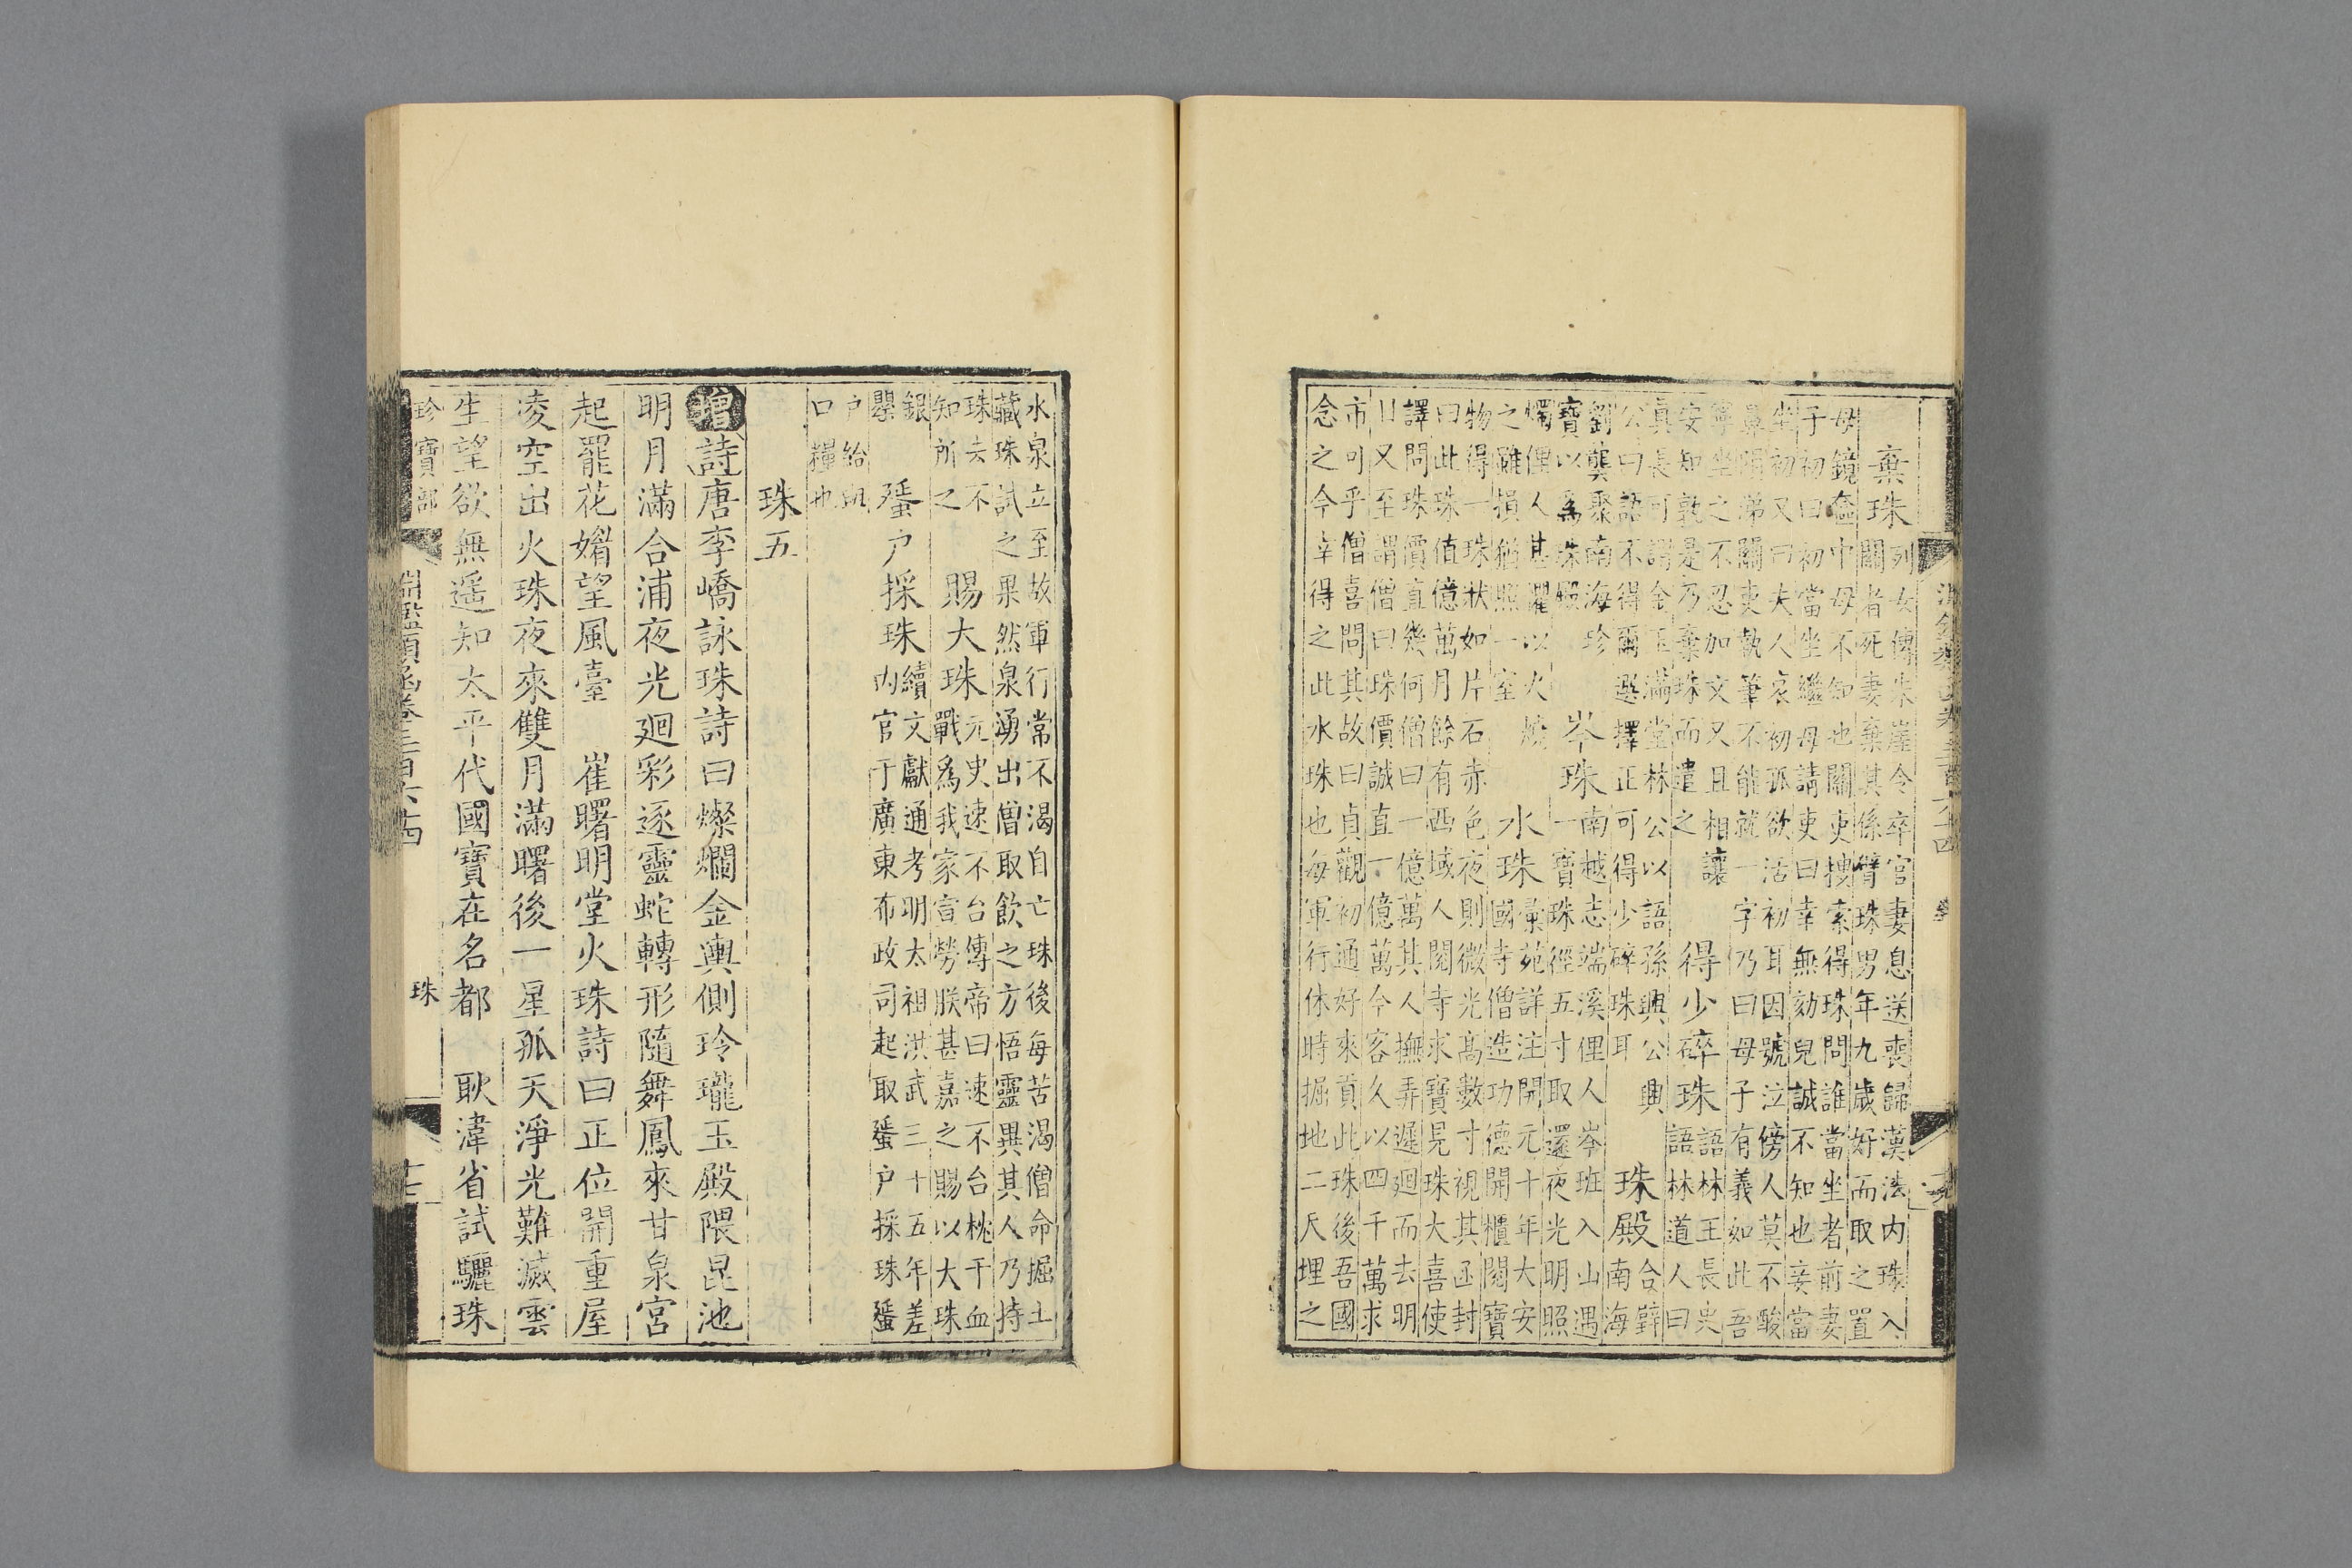 棄珠
列女傳朱崖令卒官妻息送喪歸漢法内珠入
關者死妻棄其係臂珠男年九歲好而取之置
母鏡奩中母不知也關吏搜索得珠問誰當坐者前妻
子初曰初當坐繼母請吏曰幸無劾兒誠不知也妾當
坐初又曰夫人哀初孤欲活初耳因號泣傍人莫不酸
鼻隕涕關吏執筆不能就一字乃曰母子有義如此吾
寧坐之不忍加文又且相讓
安知孰是乃棄珠而遣之
得少碎珠
語林王長史
語林道人曰
真長可謂金玉滿堂林公以語孫興公興
公曰語不得爾選擇正可得少碎珠耳
珠殿
合璧
南海
劉龑聚南海珍
寶以爲珠殿
岑珠
南越志端溪俚人岑班入山遇
一寶珠徑五寸取還夜光明照
燭俚人甚懼以火燒
之雖損猶照一室
水珠
彙苑詳注開元十年大安
國寺僧造功德開櫃閱寶
物得一珠狀如片石赤色夜則微光高數寸視其函封
曰此珠值億萬月餘有西域人閱寺求寶見珠大喜使
譯問珠價直幾何僧曰一億萬其人撫弄遲迴而去明
日又至謂僧曰珠價誠直一億萬今客久以四千萬求
市可乎僧喜問其故曰貞觀初通好來貢此珠後吾國
念之今幸得之此水珠也每軍行休時掘地二尺埋之
水泉立至故軍行常不渴自亡珠後每苦渴僧命掘土
藏珠試之果然泉湧出僧取飲之方悟靈異其人乃持
珠去不
知所之
賜大珠
元史速不台傳帝曰速不台枕干血
戰爲我家宣勞朕甚嘉之賜以大珠
銀
甖
蜑户採珠
續文獻通考明太祖洪武三十五年差
内官于廣東布政司起取蜑户採珠蜑
户給與
口糧也
珠五
增詩唐李嶠詠珠詩曰燦爛金輿側玲瓏玉殿隈昆池
明月滿合浦夜光迴彩逐靈蛇轉形隨舞鳳來甘泉宮
起罷花媚望風臺 崔曙明堂火珠詩曰正位開重屋
凌空出火珠夜來雙月滿曙後一星孤天淨光難滅雲
生望欲無遥知太平代國寶在名都 耿湋省試驪珠
珍寶部
淵鑑類函卷三百六十四
珠
十七